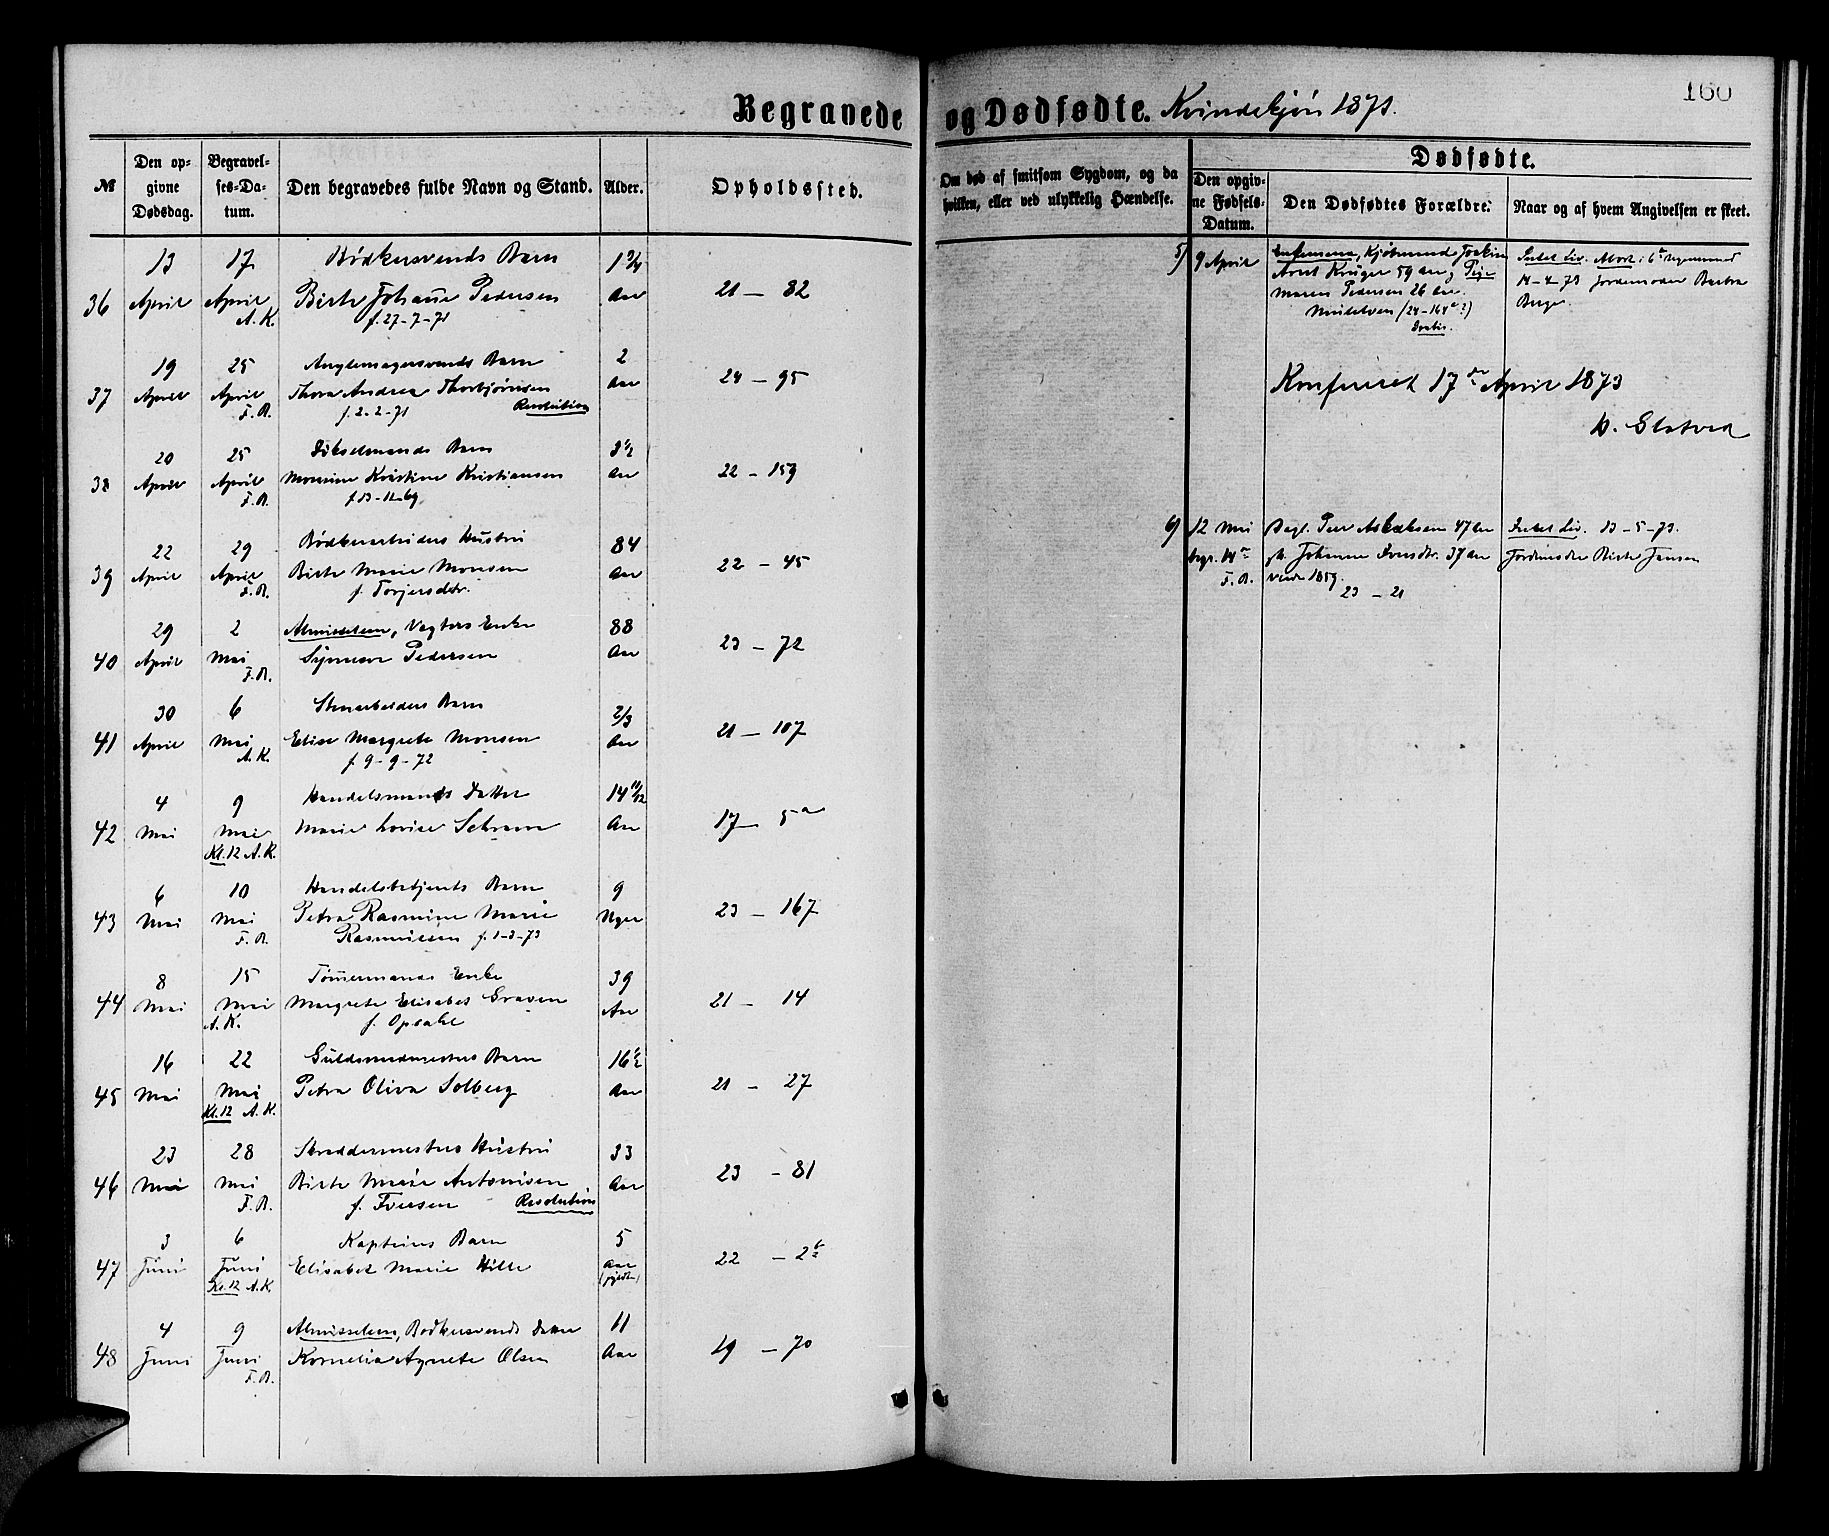 160
Begravede og Dødfødte. Kvindekjøn 1873.
№
Den opgivne Dødsdag.
Begravelses-Datum.
Den begravedes fulde Navn og Stand.
Alder.
Opholdssted.
Om død af smitsom Sygdom, og da hvilken, eller ved ulykkelig Hændelse.
Dødfødte.
Den opgivne Fødsels-Datum.
Den Dødfødtes Forældre.
Naar og af hvem Angivelsen er skeet.
13 17 Bødkersvends Barn 1 3/4
36 April April Birte Johanne Pedersen Aar 21 – 82
A.K. f. 27-7-71
19 25 Barn 2
37 April April Thora Andrea Thorbjørnsen Aar 24 – 95
F.B. f. 2-2-71 Resolution
20 25 Barn 3 1/2
38 April April Kristine Kristiansen Aar 22 – 159
F.B. f. 13-12-69
22 29 Bødkerarbeiders Hustru 84
39 April April Birte Marie Monsen Aar 22 – 45
F.B. f. Torjersdtr.
29 2 Almisselem, Vegters Enke 88
40 April Mai Pedersen Aar 23 – 72
F.B.
30 6 Stenarbeiders Barn 2/3
41 April Mai Elise Margrete Monsen Aar 21 – 107
A.K. f. 9-9-72
4 9 Handelsmands Datter 14 11/12
42 Mai Mai Marie Lovise Schram Aar 17 – 5 a
Kl. 12 A.K.
6 10 Handelsbetjents Barn 9
43 Mai Mai Petra Rasmine Marie Uger 23 – 167
F.B. Rasmussen f. 1-3-73
8 15 Tømermands Enke 39
44 Mai Mai Margrete Elisabet Graven Aar 21 – 14
A.K. f. Opsahl
16 22 Guldsmedmesters Barn 16 1/2
45 Mai Mai Petra Oliva Solberg Aar 21 – 27
Kl. 12 A.K.
23 28 Skreddermesters Hustru 33
46 Mai Mai Birte Marie Antonisen Aar 23 – 81
F.B. f. Iversen Resolution
3 6 Kapteins Barn 5
47 Juni Juni Elisabet Marie Hille Aar 22 – 2 b
Kl. 12 A.K.
4 9 Almisselem, Bødkersvends Datter 11
48 Juni Juni Kornelia Agnete Olsen Aar 19 – 70
F.B.
5) 9 April Kjøbmand Joakim
Arnt Krüger 59 Aar, Pige
Maren Pedersen 26 Aar
14-4-73 Jordemoder Barbra
Berger
Konfereret 17de April 1873
6) 12 Mai Dagl. Peer Aslaksen 47 Aar
begr. 14de Johanne Iversdtr. 37 Aar
F.B. viede 1859.
23 – 21
Intet Liv. 13-5-73.
Jordmoder Birte Jansen